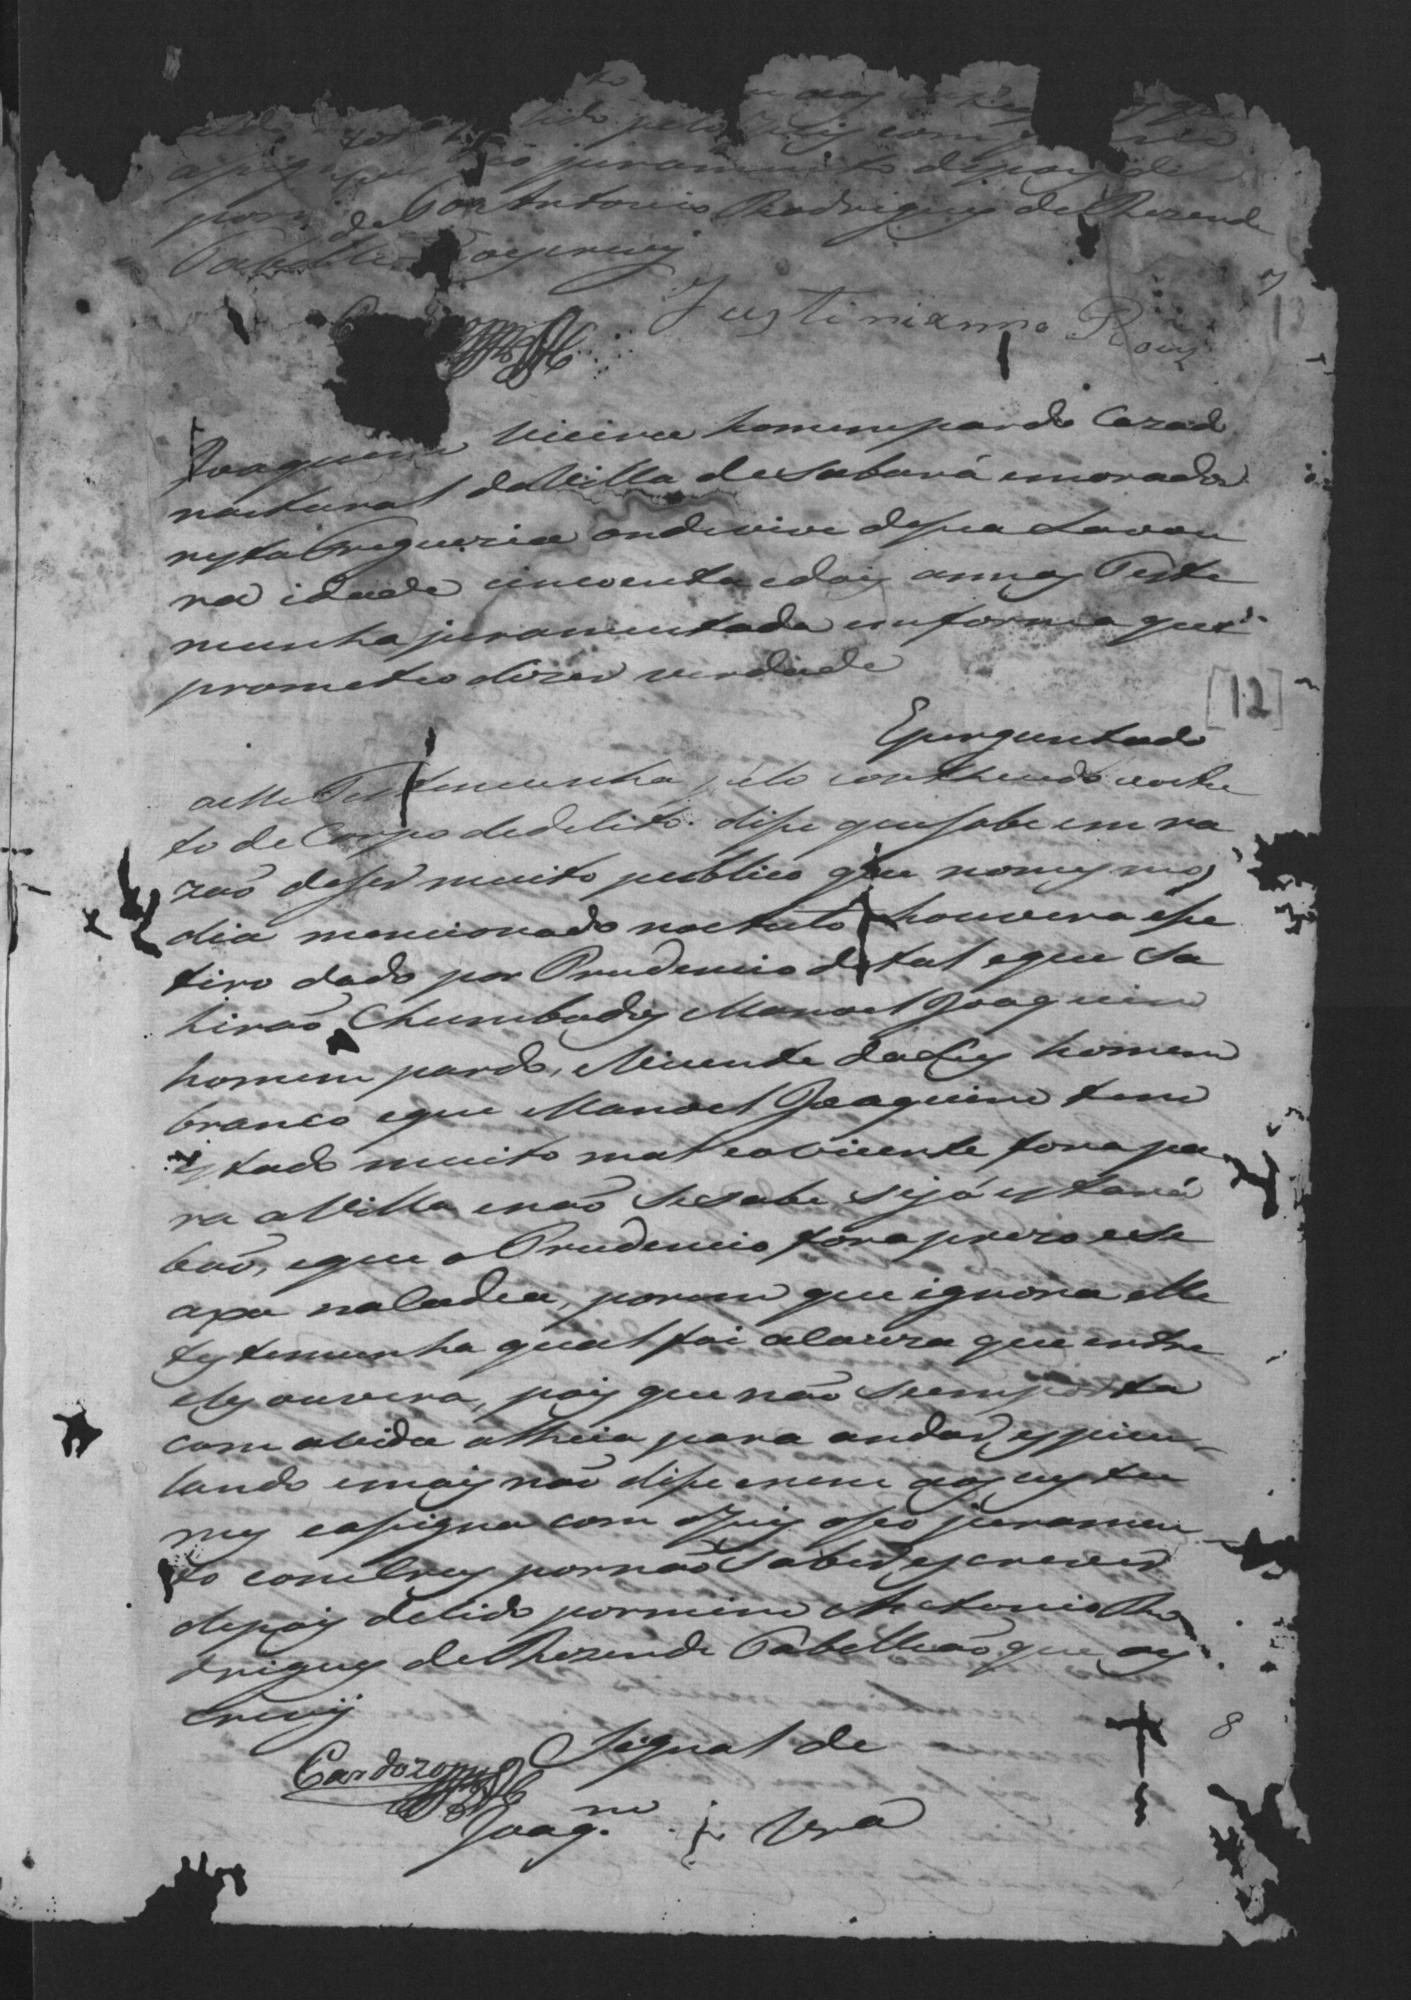 lido pelo Juiz com
o juramento depois de
por Antonio Rodrigues de Rezende
Tabelliam
Justinianno Roiz
Joaquim Vieira homem pardo Cazado
natural da Villa de Sabará e morador
nesta Freguezia onde vive de sua Lavou
ra idade cincoenta e dois annos Teste
munha juramentada em forma que
prometeo dizer verdade
[12]
E perguntado
a elle Testemunha pelo contheudo no Au
to de Corpo de delito disse que sabe em ra
zaõ de ser muito publico que no mesmo
dia mencionado no Auto houvera esse
tiro dado por Prudencio de tal e que Sa
hiraõ Chumbados Manoel Joaquim
homem pardo, e Vicente da Luz homem
branco e que Manoel Joaquim tem
estado muito mal e o Vicente fora pa
ra a Villa e naõ se sabe se já estará
baõ, e que o Prudencio fora prezo e se
axa na Cadea, porem que ignora elle
testemunha qual foi a Cauza que entre
eles ouvera, pois que naõ se emporta
com a vida alheia para andar espicu
lando e mais naõ disse e nem aos custu
mes e assigna com o Juiz o seo juramen
to com Cruz por naõ Saber escrever
depois de lido por mim Antonio Ro
drigues de Rezende Tabelliaõ que es
crevij
8
Signal de
Cardozo
Joaq.m Vra